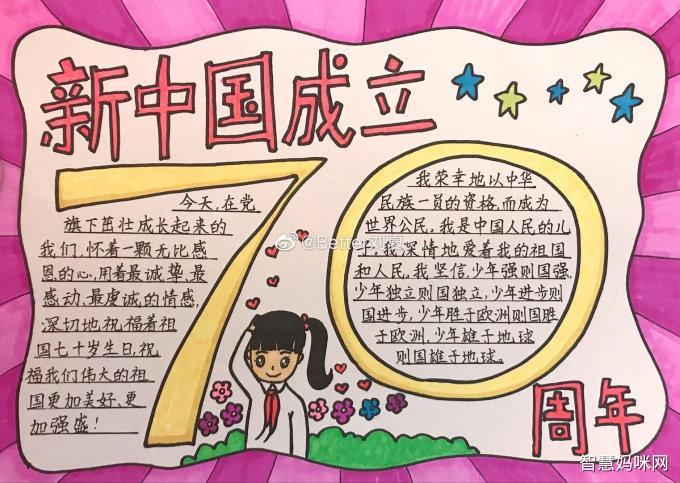 新中国成立
70
今天,在党
旗下茁壮成长起来的
我们,怀着一颗无比感
恩的心,用着最诚挚、最
感动、最虔诚的情感,
深切地祝福着祖
国七十岁生日,祝
福我们伟大的祖
国更加美好、更
加强盛!
我荣幸地以中华
民族一员的资格,而成为
世界公民。我是中国人民的儿
子,我深情地爱着我的祖国
和人民。我坚信,少年强则国强,
少年独立则国独立,少年进步则
国进步,少年胜于欧洲则国胜
于欧洲,少年雄于地球
则国雄于地球。
周年
智慧妈咪网